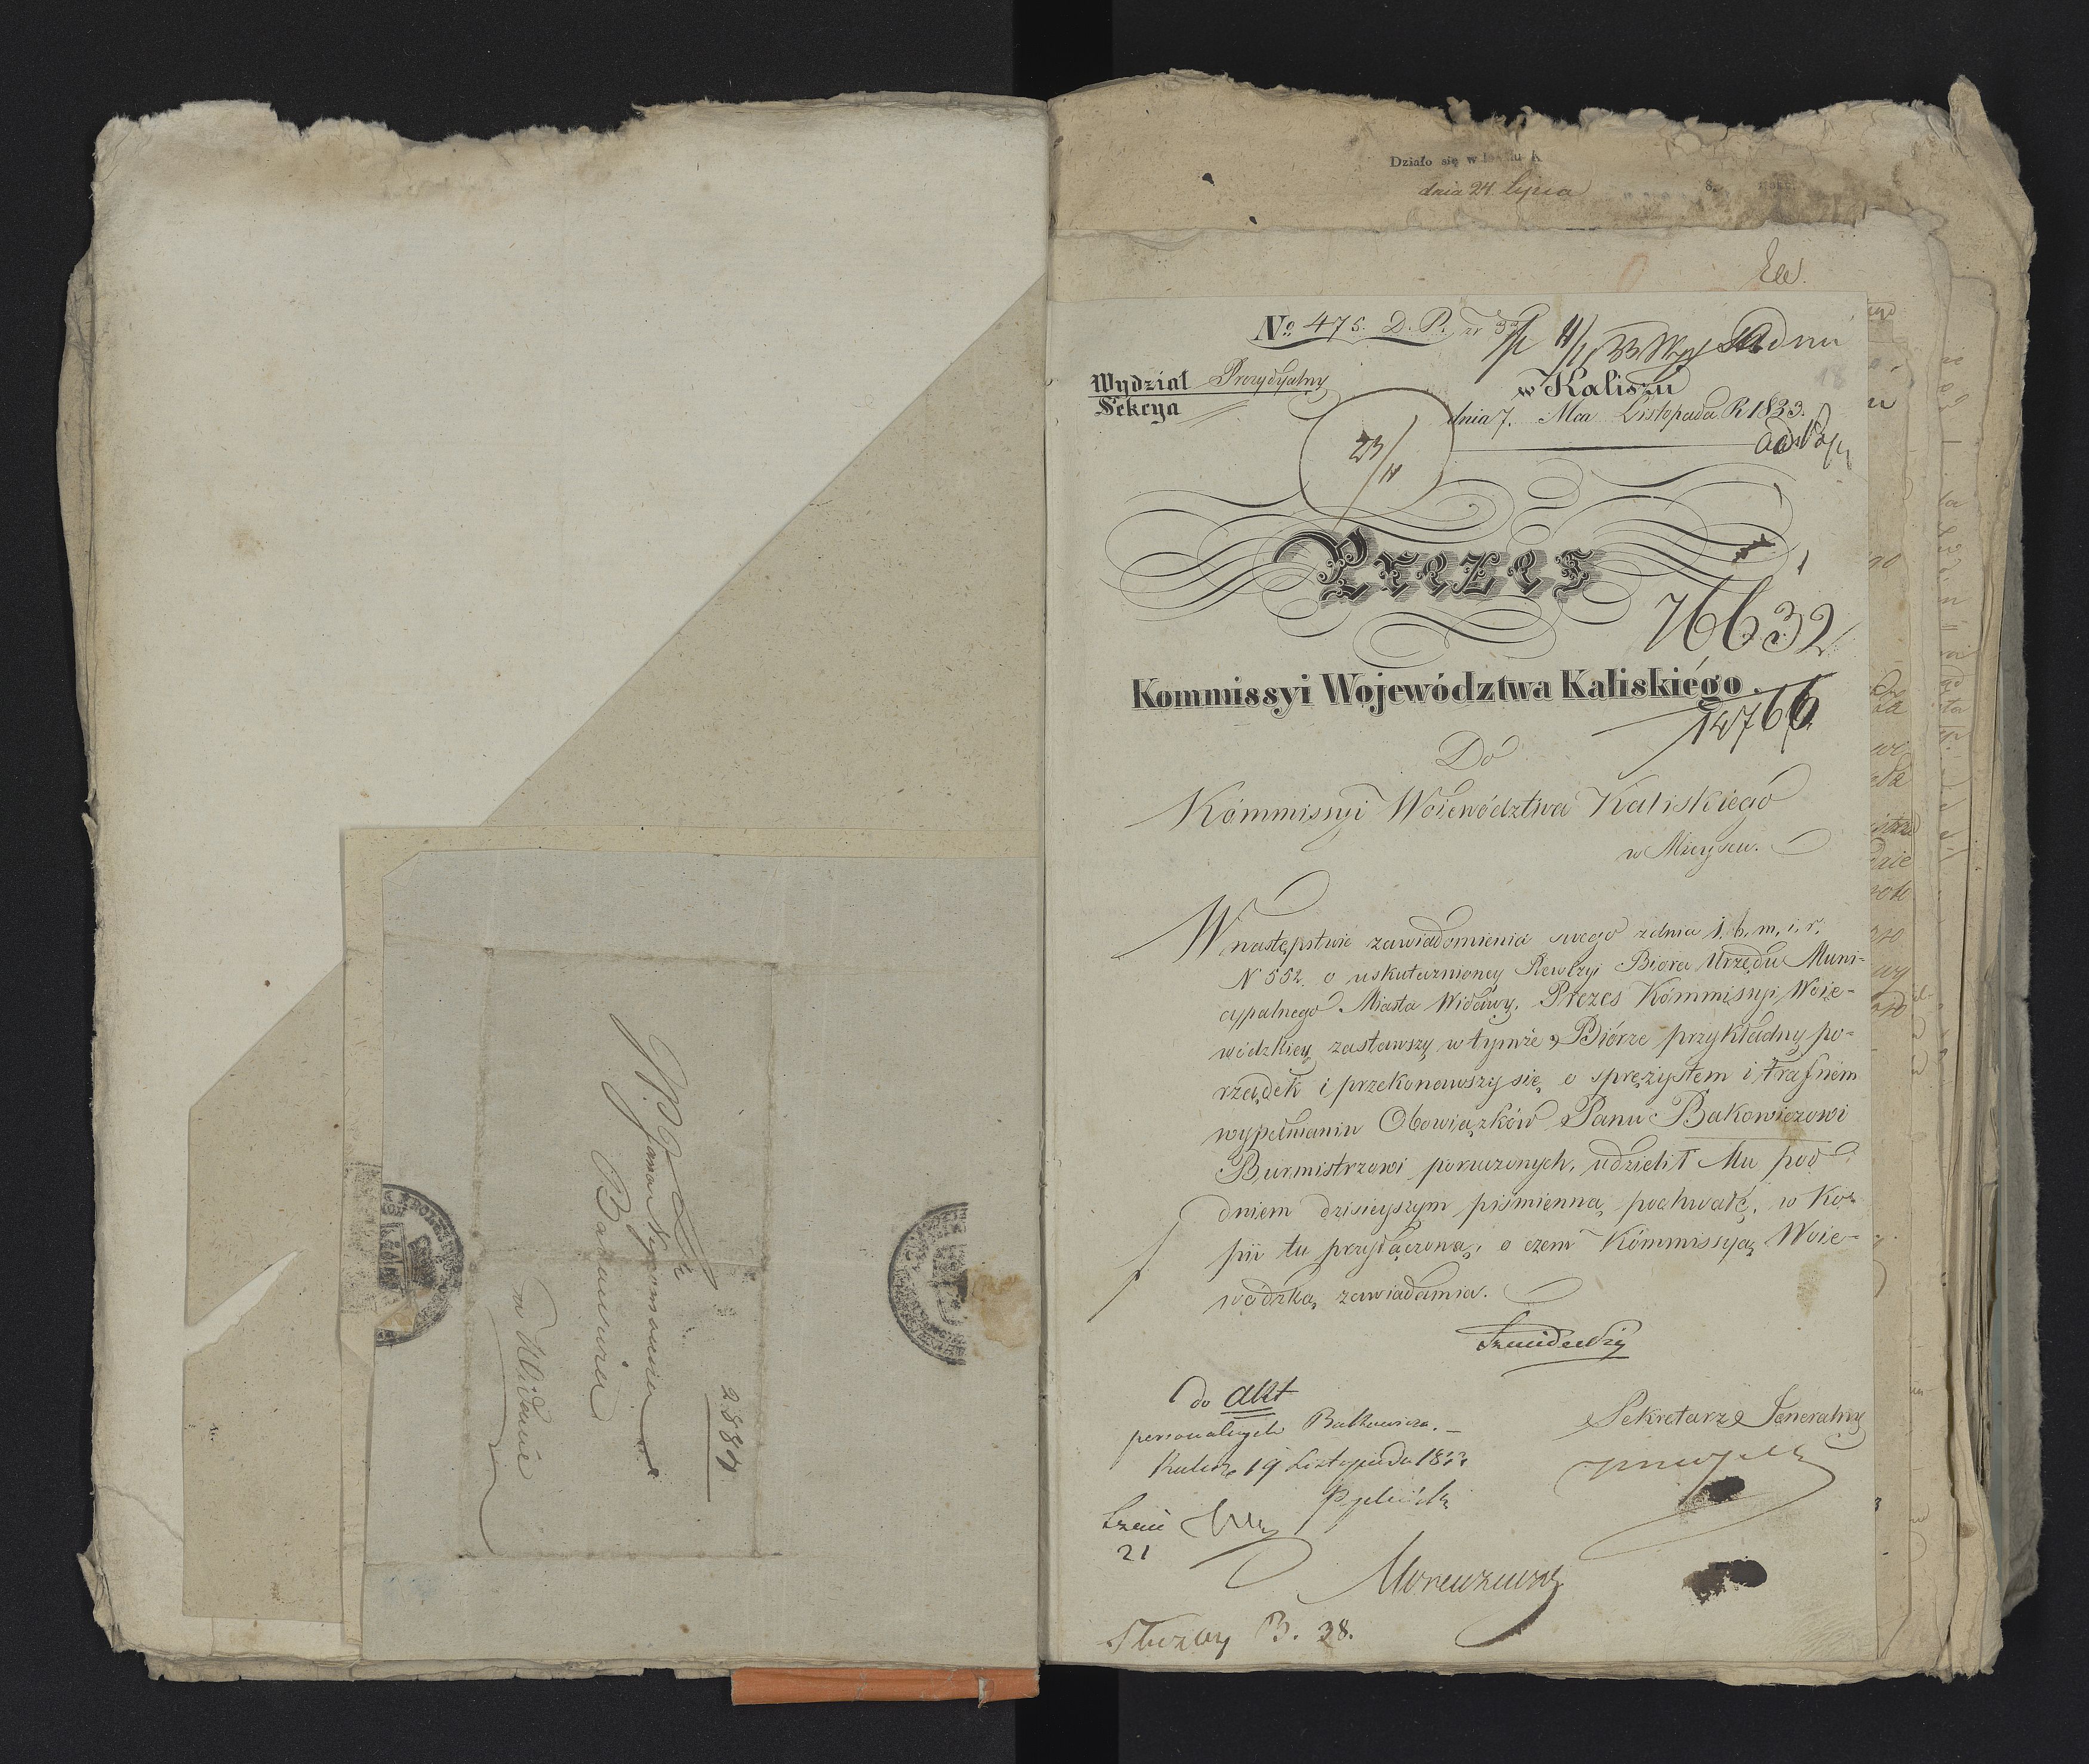 2884
w Widawie
Działo się w
dnia 24 lipca
No. 475. D. P.
Wydział Prezydyalny
Sekcya
w Kaliszu
dnia 7. Mca Listopada R 1833.
23/11
Prezes
76632
Kommissyi Województwa Kaliskiégo.
14766
Do
Kommissyi Woiewództwa Kaliskiego
w Mieyscu.
W następstwie zawiadomienia swego z dnia 1. b, m, i, r,
N 552. o uskutecznioney Rewizyi Biora Urzędu Muni-
cypalnego Miasta Widawy, Prezes Kommissyi Woie-
wódzkiey zastawszy w tymże Biórze przykładny po-
rządek i przekonawszy się o sprężystem i trafnem
wypełnianiu Obowiązków Panu Bakowiczowi
Burmistrzowi poruczonych, udzielił Mu pod
dniem dzisieyszym piśmienną pochwałę, w Kop-
pii tu przyłączoną, o czem Kommissyą Woie-
wódzką zawiadamia.
do akt
personalnych Bakowicza.
Kalisz 19 Listopada 1833
Sekretarz Jeneralny
21
B. 38.